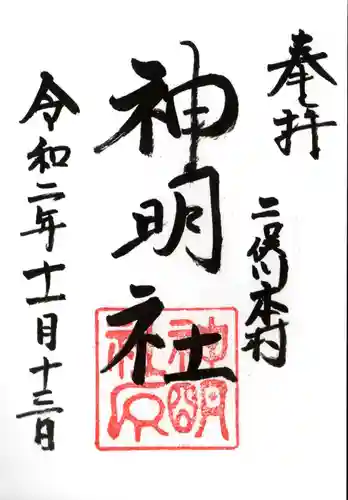 奉拝
二俣川本村
神明社
令和二年十一月十三日
神明社